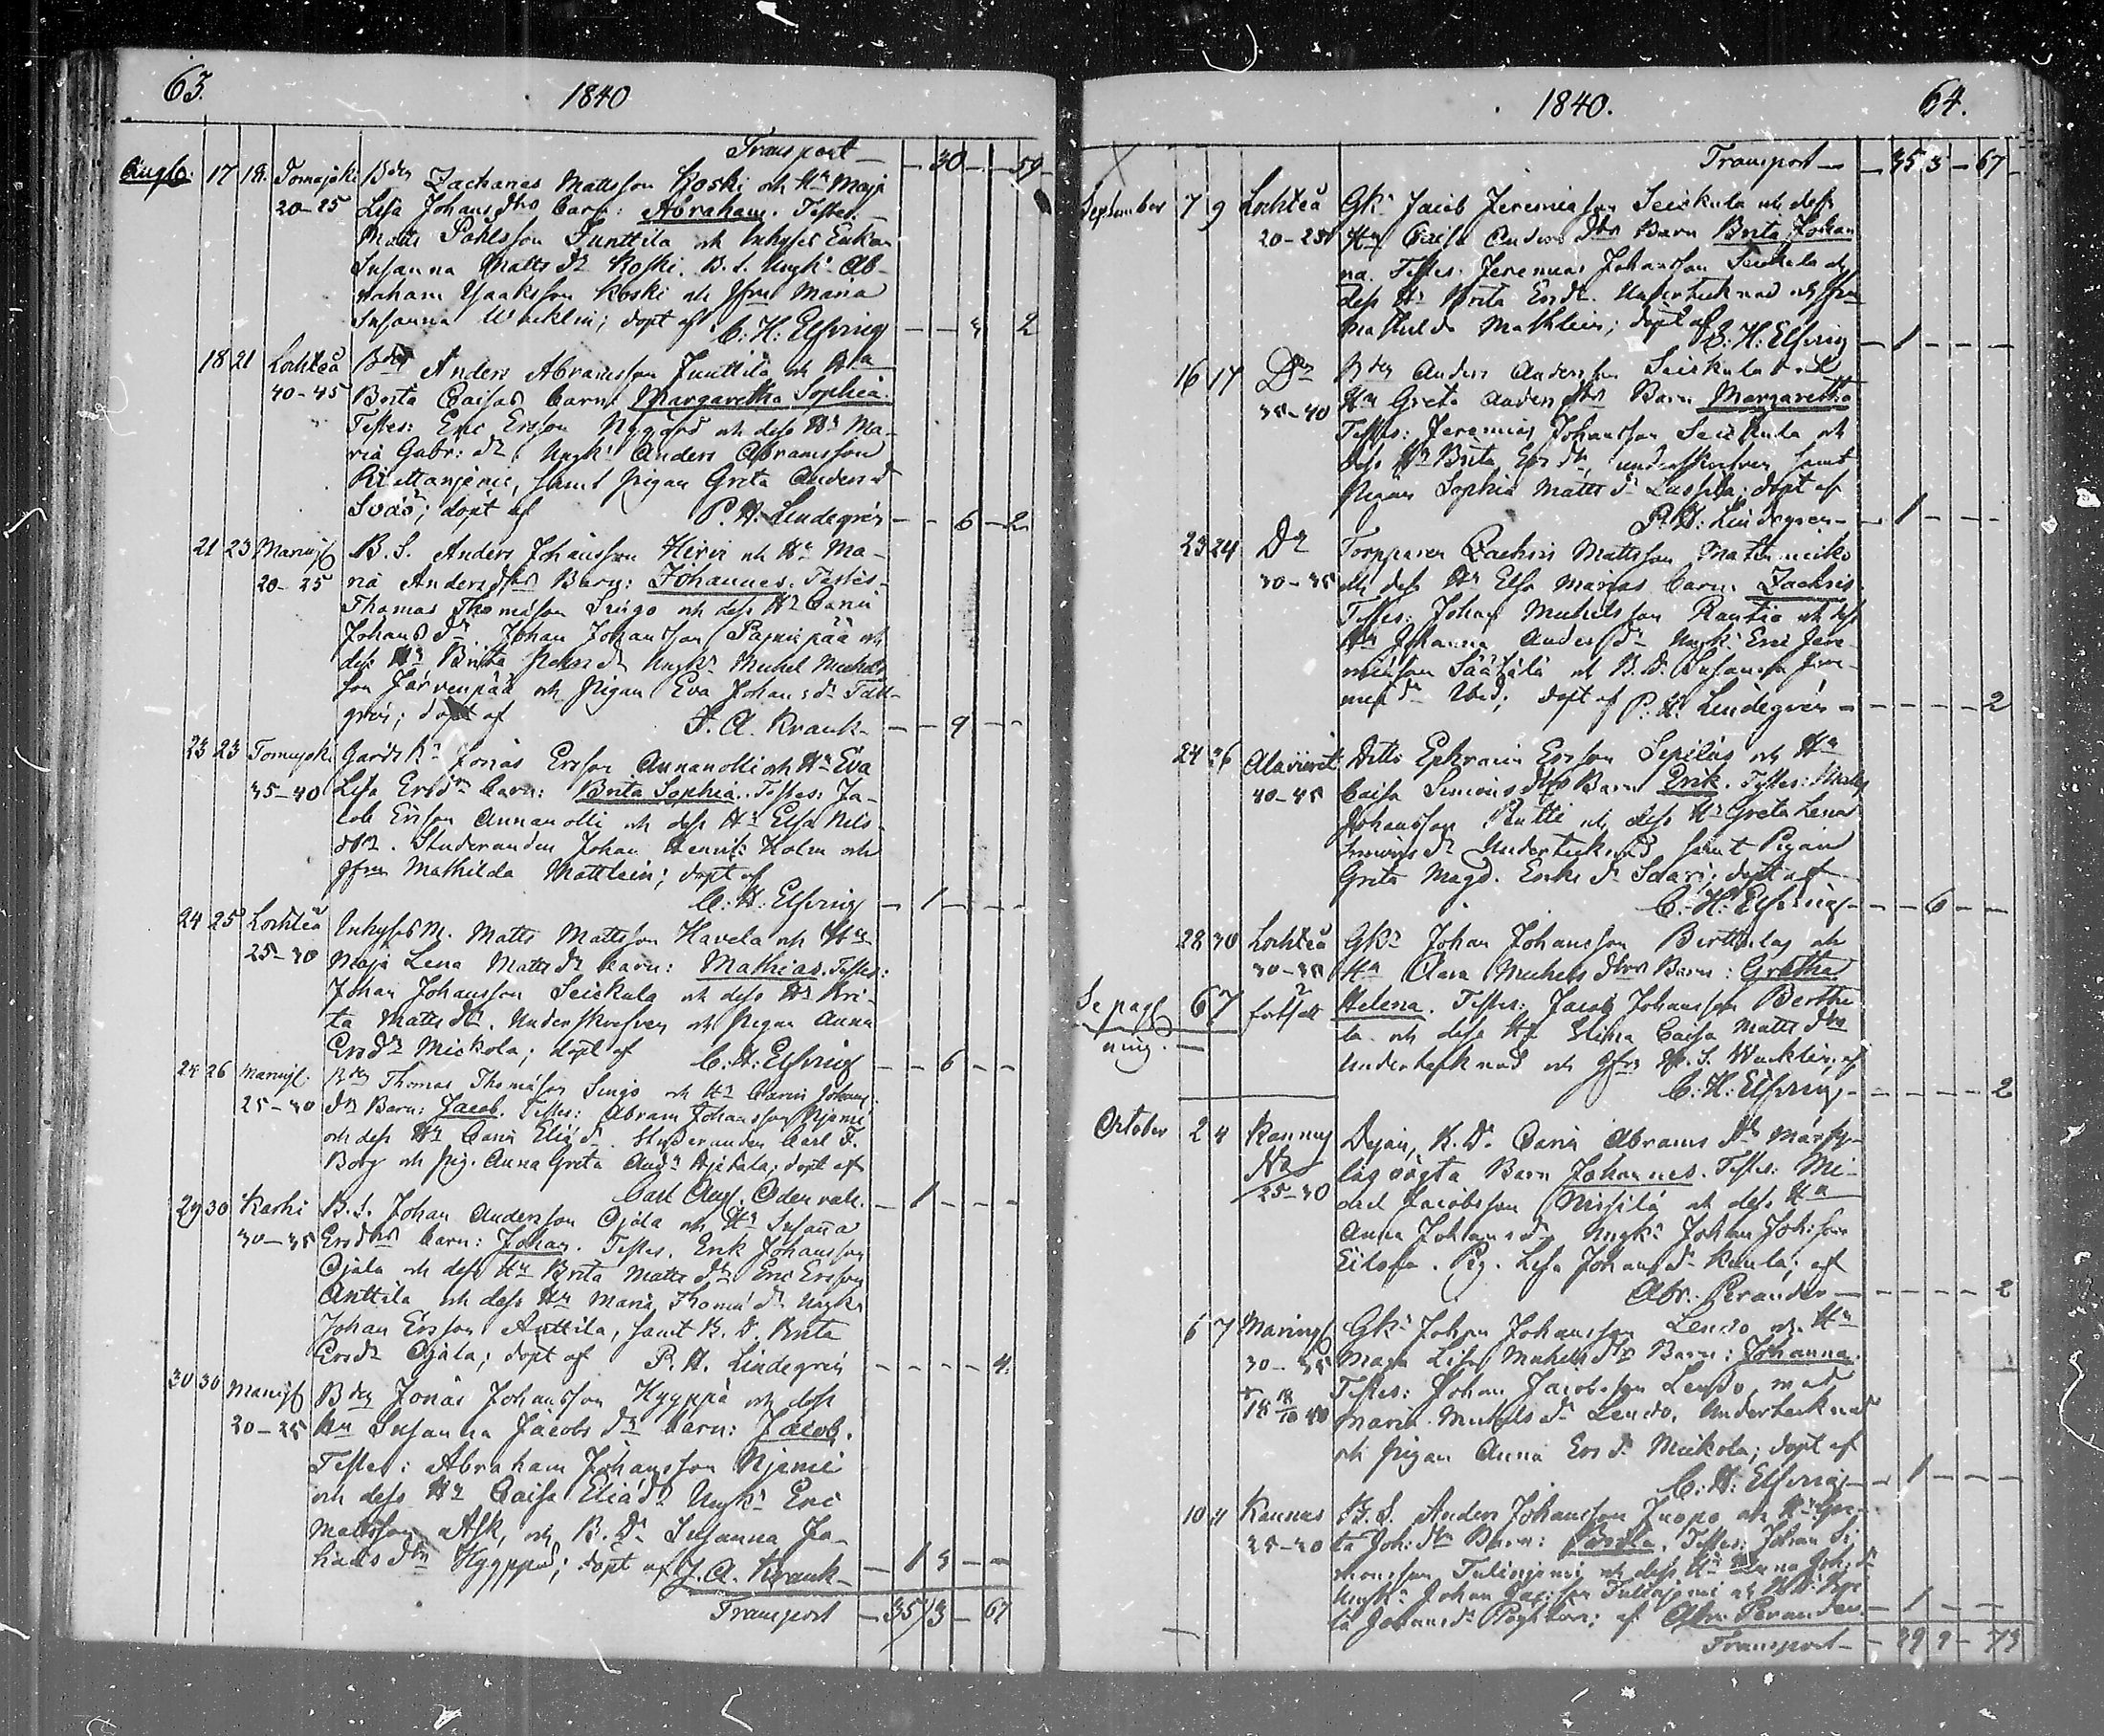 63.
1840
Transport — 30 — 59
Aug. 17 18. Tomujoki Bden Zacharias Mattsson Koski och Hu Maja
20–25 Lisa Johansdtrs barn: Abraham. Testes:
Matts Pohlsson Junttila och Inhyses Enkan
Susanna Matts dr Koski. B. S. Ungk. Ab-
raham Isaaksson Koski och Jfru Maria
Susanna Wacklin; döpt af C: H: Elfving 2
18 21 Lochteå Bden Anders Abramsson Junttila och Hu
40–45 Brita Caisas barn: Margaretha Sophia.
Testes: Eric Ersson Nygård och dess Hu Ma-
ria Gabr: dr, Ungk. Anders Abramsson
samt Pigan Greta Andersd
; döpt af P. H. Lindegrén — 6 — 2
21 23 Maringf
20–25 B. S. Anders Johansson Hirvi och Hu Ma-
ria Andersdtrs Barn: Johannes. Testes:
Thomas Thomasson Singo och dess Hu Carin
Johansdr. Johan Johansson Pajunpää och
dess Hu Brita dr Ungk. Michel Michels-
son Järvenpää och Pigan Eva Johansdr Tall-
gren; döpt af J. A. Krank — 9
23 23 Tomujoki Gårdsk. Jonas Ersson Annanolli och Hu Eva
35–40 Lisa Ersdrs barn: Brita Sophia. Testes: Ja-
cob Ersson Annanolli och dess Hu Elsa Nils
dtr. Studeranden Johan Henrik Holm och
Jfru Mathilda Mathlein; döpt af
C: H: Elfving — 1
24 25 Lochteå Inhyses M. Matts Mattsson Havela och Hu
25–30 Maja Lena Mattsdrs barn: Mathias. Testes:
Johan Johansson Seickula och dess Hu Bri-
ta Mattsdtr. Underskrefven och Pigan Anna
Ersdr Mickola; döpt af C: H: Elfving — 6
25 26 Maringf. Bden Thomas Thomasson Singo och Hu Carin Johans
25–30 dtrs Barn: Jacob. Testes: Abram Johansson Njemi
och dess Hu Caisa Eliædr. Studeranden Carl F.
Borg och Pig. Anna Greta Andr. Ajckala; döpt af
Carl Aug. Odenvall. — 1
29 30 Karhi B. S. Johan Andersson Ojala och Hu Susanna
30–35 Ersdtrs barn: Johan. Testes. Erik Johansson
Ojala och dess Hu Brita Matts dtr Eric Ersson
Anttila och dess Hu Maria Thomædr Ungk.
Johan Ersson Anttila, samt B. D. Brita
Ersdr Ojala; döpt af P. H. Lindegrén — 4.
30 30 Maringf Bden Jonas Johansson Hyyppä och dess
20–25 Hu Susanna Jacobs drs barn: Jacob.
Testes: Abraham Johansson Njemi
och dess Hu Caisa Eliædr Ungk. Eric
Mattsson Ask, och B. Dr Susanna Jo-
hans dtr Hyyppä; döpt af J. A. Krank — 1 3
Transport — 35 3 — 67
1840.
64.
Transport — 35 3 — 67
September 7 9 Lochteå Gk. Jacob Jeremiasson Seickula och dess
20–25 Hu Caisa Anders dtrs Barn Brita Johan
na. Testes: Jeremias Johansson Seickula och
dess Hu Brita Ersdr. Undertecknad och Jfru
Mathilda Mathlein; döpt af C: H: Elfving — 1
16 17 Do Bden Anders Andersson Seickula och
35–40 Hu Greta Andersdtrs Barn Margaretha
Testes: Jeremias Johansson Seickula och
dess Hu Brita Ersdr, underskrefven samt
Pigan Sophia Mattsdr Lassila; döpt af
P. H: Lindegren — 1
23 24 Do Torpparen Zachris Mattsson
30–35 och dess Hu Elsa Marias barn Zachris
Testes: Johan Michelsson Rautio och dess
Hu Johanna Andersdr Ungk. Eric Jere-
miasson Säätilä och B. D. Susanna Jere-
; döpt af P: H: Lindegrén — 2
24 26 Alavieris Ditto Ephraim Ersson Sipilä och Hu
40–45 Caisa Simonsdtrs Barn Erik. Testes: Matts
Johansson och dess Hu Greta Lena
Simonsdr Undertecknad samt Pigan
Greta Magd. Eriks dr Saari; döpt af
C: H: Elfving — 6
28 30 Lochteå Gk. Johan Johansson Berttulas och
30–35 Hu Clara Michels dtrs Barn: Gretha
Se pag 67 fortsätt Helena. Testes: Jacob Johansson Berttu
ning. la och dess Hu Caisa Matts dtr
Undertecknad och Jfru M. S. Wacklin; af
C: H: Elfving — 2
October 2 4 Kannus Dejan, B. Dr. Carin Abrams dr
25–30 oägta Barn Johannes. Testes: Mi-
chel Jacobsson Nissilä och dess Hu
Anna Johansdr Ungk. Johan Joh:sson
. Pig. Lisa Johansdr ; af
Abr. Perander — 2
6 7 Maringf Gk. Johan Johansson Lendo och Hu
30–35 Maja Lisa Michels dtrs Barn: Johanna.
Testes: Johan Jacobsson Lendo, med
Maria Michelsdr Lendo, Undertecknad
och Pigan Anna Ersdr Mickola; döpt af
C: H: Elfving — 1
10 11 Kannus B. S. Anders Johansson Juopo och Hu Gre-
25–30 ta Joh: dtrs Barn: Brita. Testes: Johan Si-
monsson och dess Hu Joh: dr
Ungk. Johan
Johansdr ; af Abr. Perander — 1
Transport — 39 9 — 73